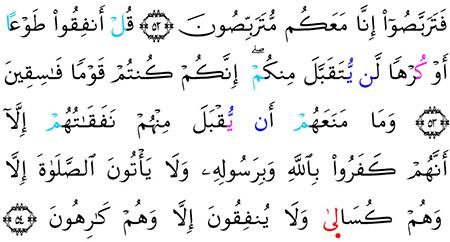 فَتَرَبَّصُوٓا۟ إِنَّا مَعَكُم مُّتَرَبِّصُونَ ۝٥٢ قُلْ أَنفِقُوا۟ طَوْعًا
أَوْ كُرْهًا لَّن يُتَقَبَّلَ مِنكُمْ ۖ إِنَّكُمْ كُنتُمْ قَوْمًا فَـٰسِقِينَ
۝٥٣ وَمَا مَنَعَهُمْ أَن يُقْبَلَ مِنْهُمْ نَفَقَـٰتُهُمْ إِلَّآ
أَنَّهُمْ كَفَرُوا۟ بِٱللَّهِ وَبِرَسُولِهِۦ وَلَا يَأْتُونَ ٱلصَّلَوٰةَ إِلَّا
وَهُمْ كُسَالَىٰ وَلَا يُنفِقُونَ إِلَّا وَهُمْ كَـٰرِهُونَ ۝٥٤